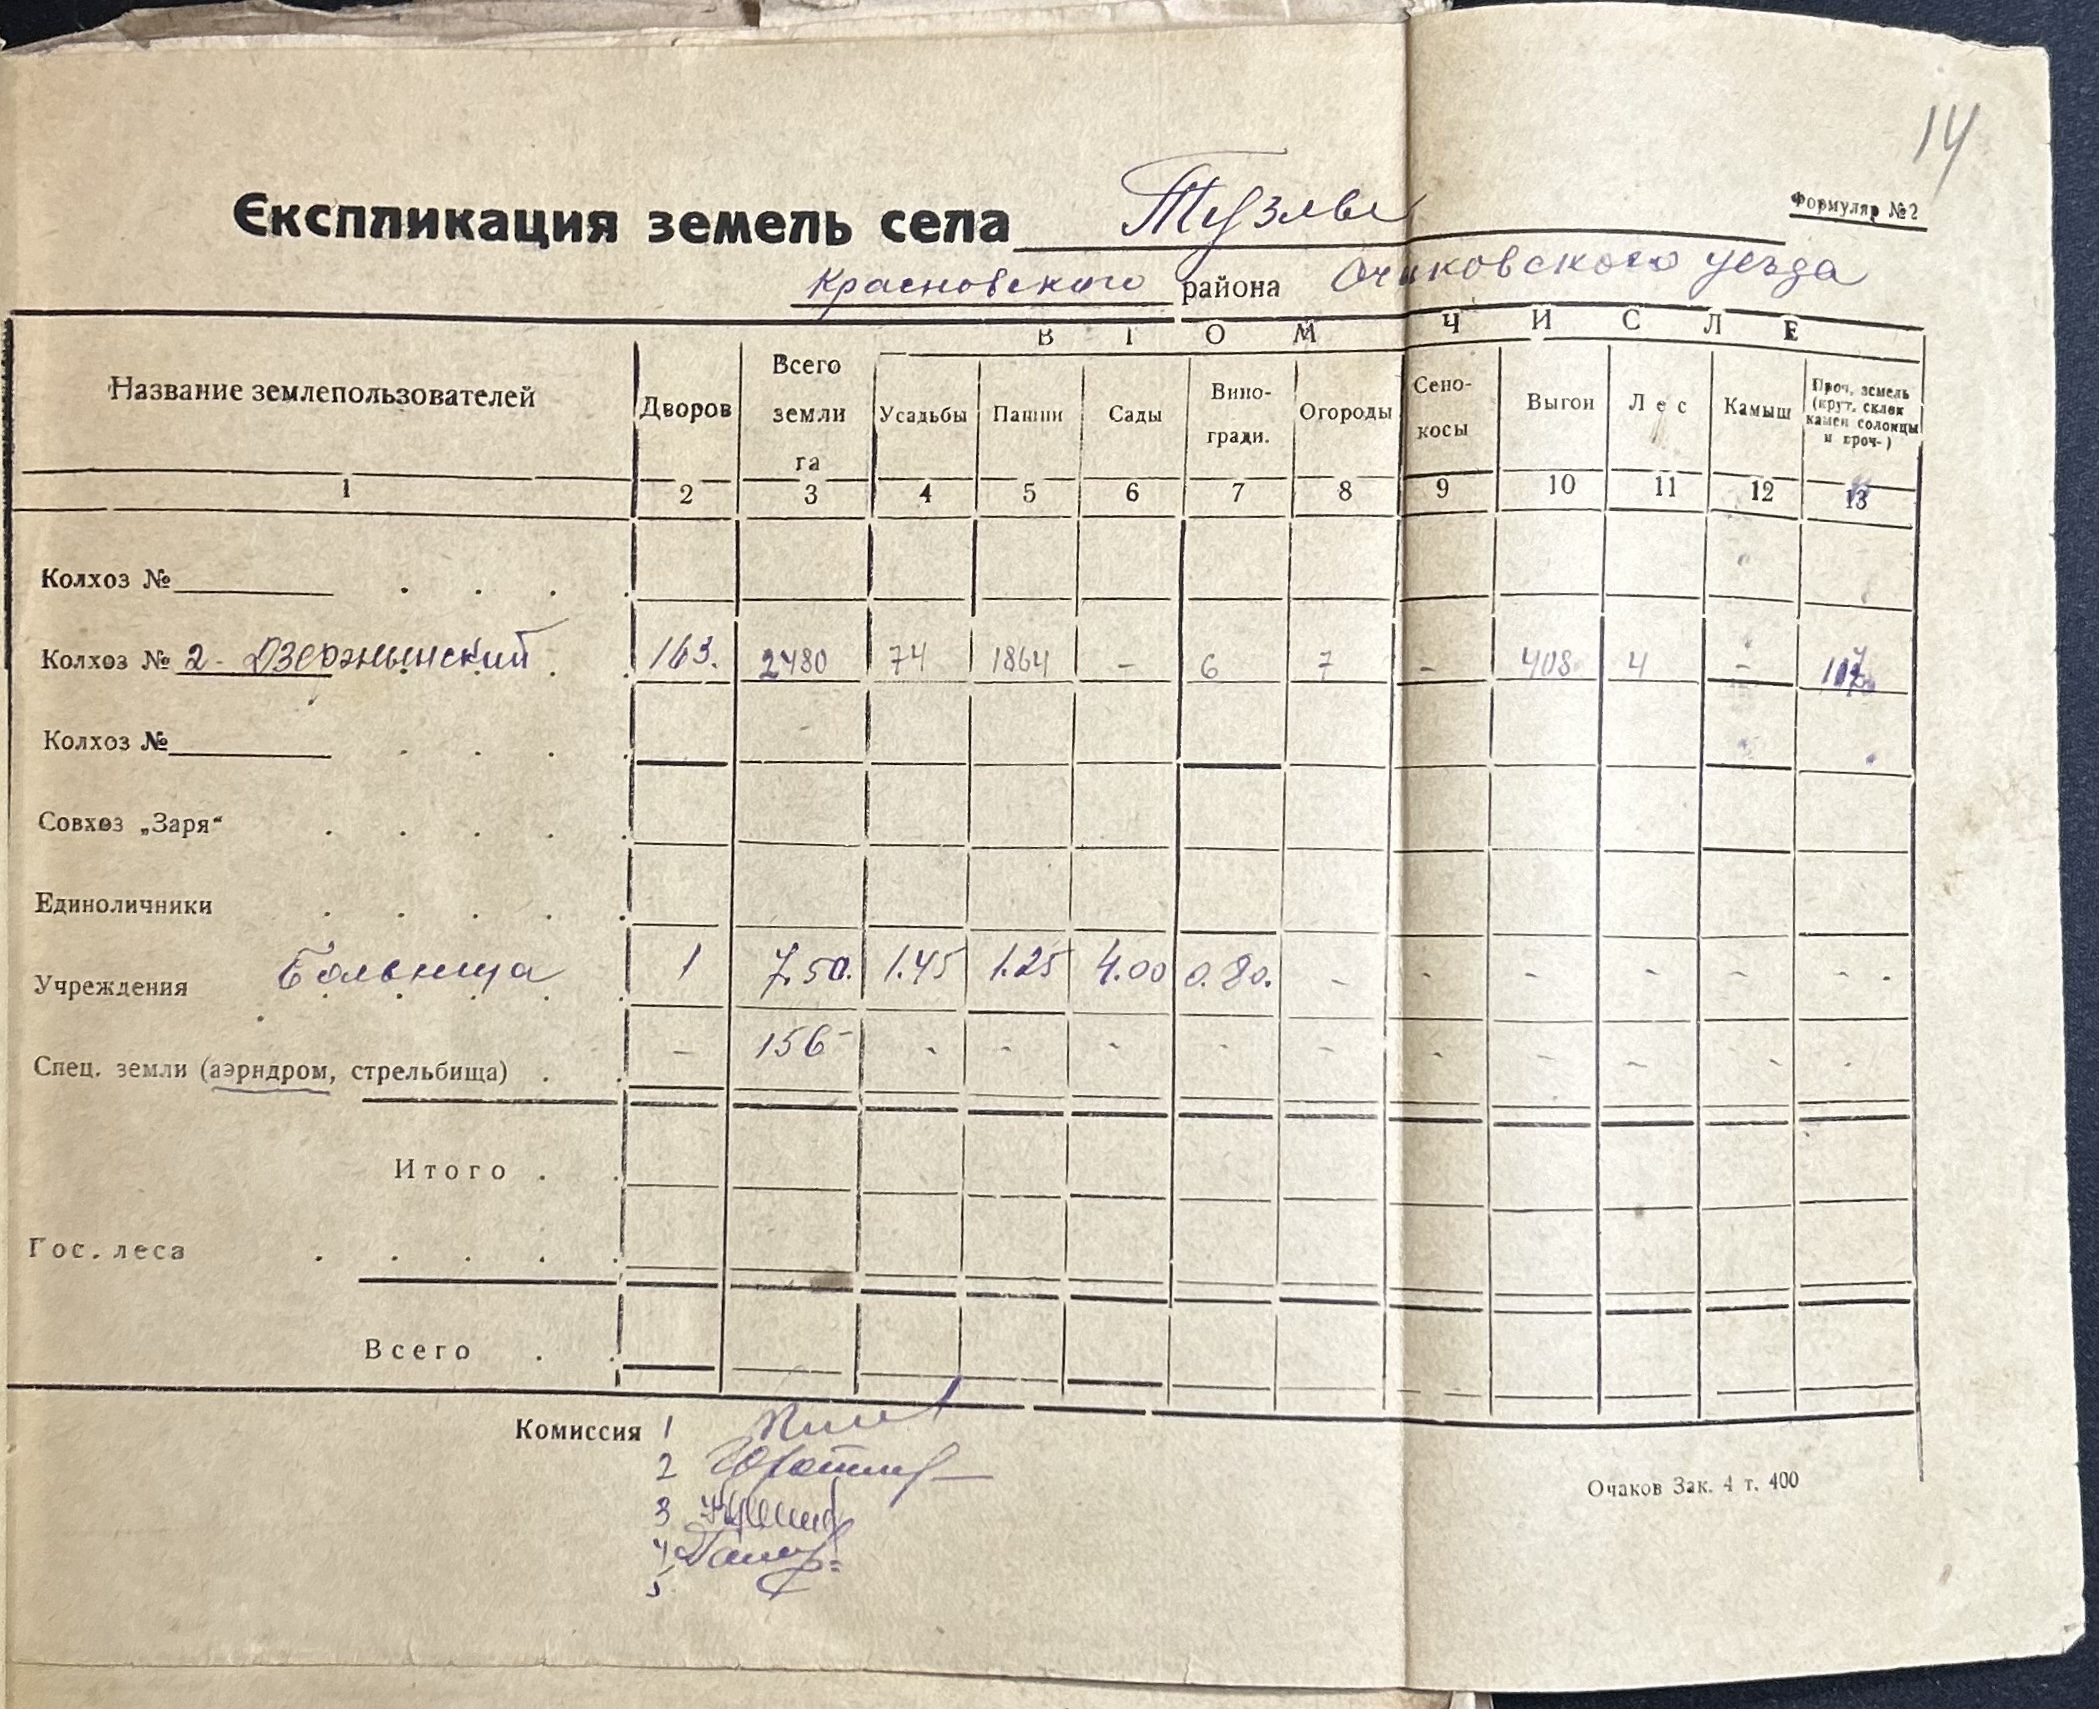 14
Формуляр №2
Експликация земель села Тузлы
Красновского района Очаковского уезда
В ТОМ ЧИСЛЕ
Название землепользователей Дворов Всего земли га Усадьбы Пашни Сады Вино-гради. Огороды Сено-косы Выгон Лес Камыш Проч. земель (крут. склек камен солонцы и проч-)
1 2 3 4 5 6 7 8 9 10 11 12 13
Колхоз №
Колхоз № 2 - Дзержынский 163. 2480 74 1864 - 6 7 - 408 4 - 117
Колхоз №
Совхоз „Заря“
Единоличники
Учреждения Больница 1 7.50. 1.45 1.25 4.00 0.80. - - - - - -
Спец. земли (аэрндром, стрельбища) - 156 - - - - - - - - - -
Итого
Гос. леса
Всего
Комиссия 1
2
3
4
5
Очаков Зак. 4 т. 400